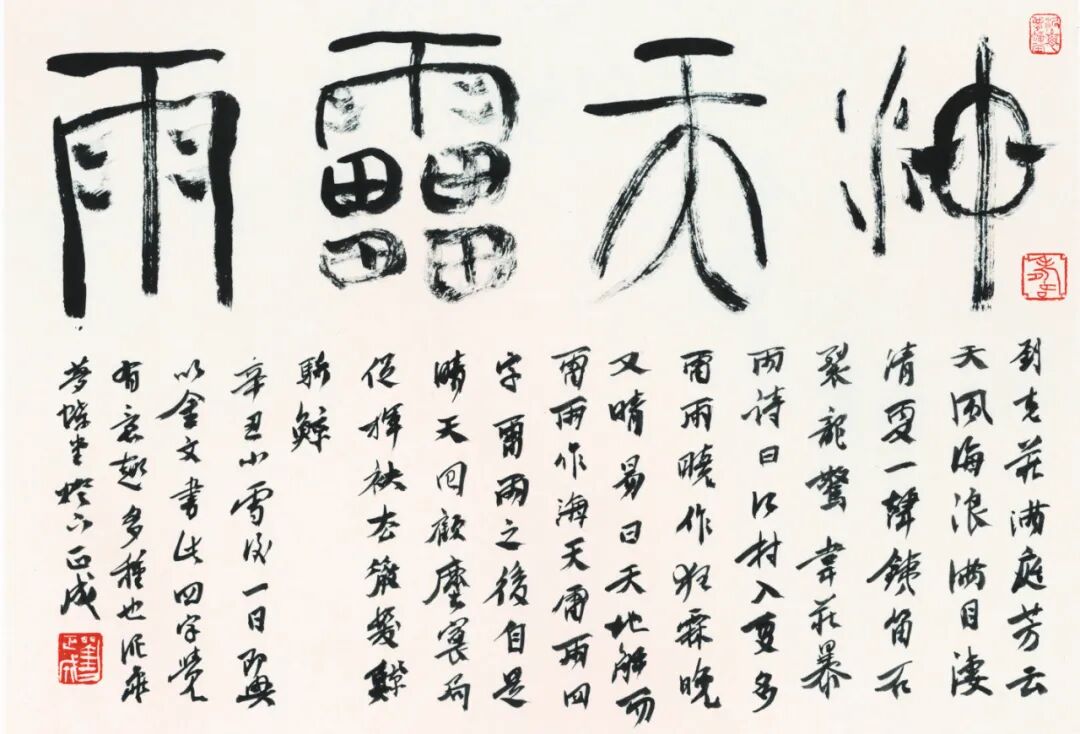 海天雷雨
劉克莊滿庭芳云
天風海浪滿目淒
清更一聲鐵笛石
裂龍驚韋莊暴
雨詩曰江村入夏多
雷雨曉作狂霖晚
又晴易曰天地解而
雷雨作海天雷雨四
字雷雨之後自是
晴天回顧塵寰局
促揮袂去散髮
騎鯨
辛丑小雪後一日即興
以金文書此四字覺
有意趣多種也
夢蝶堂燈下正成